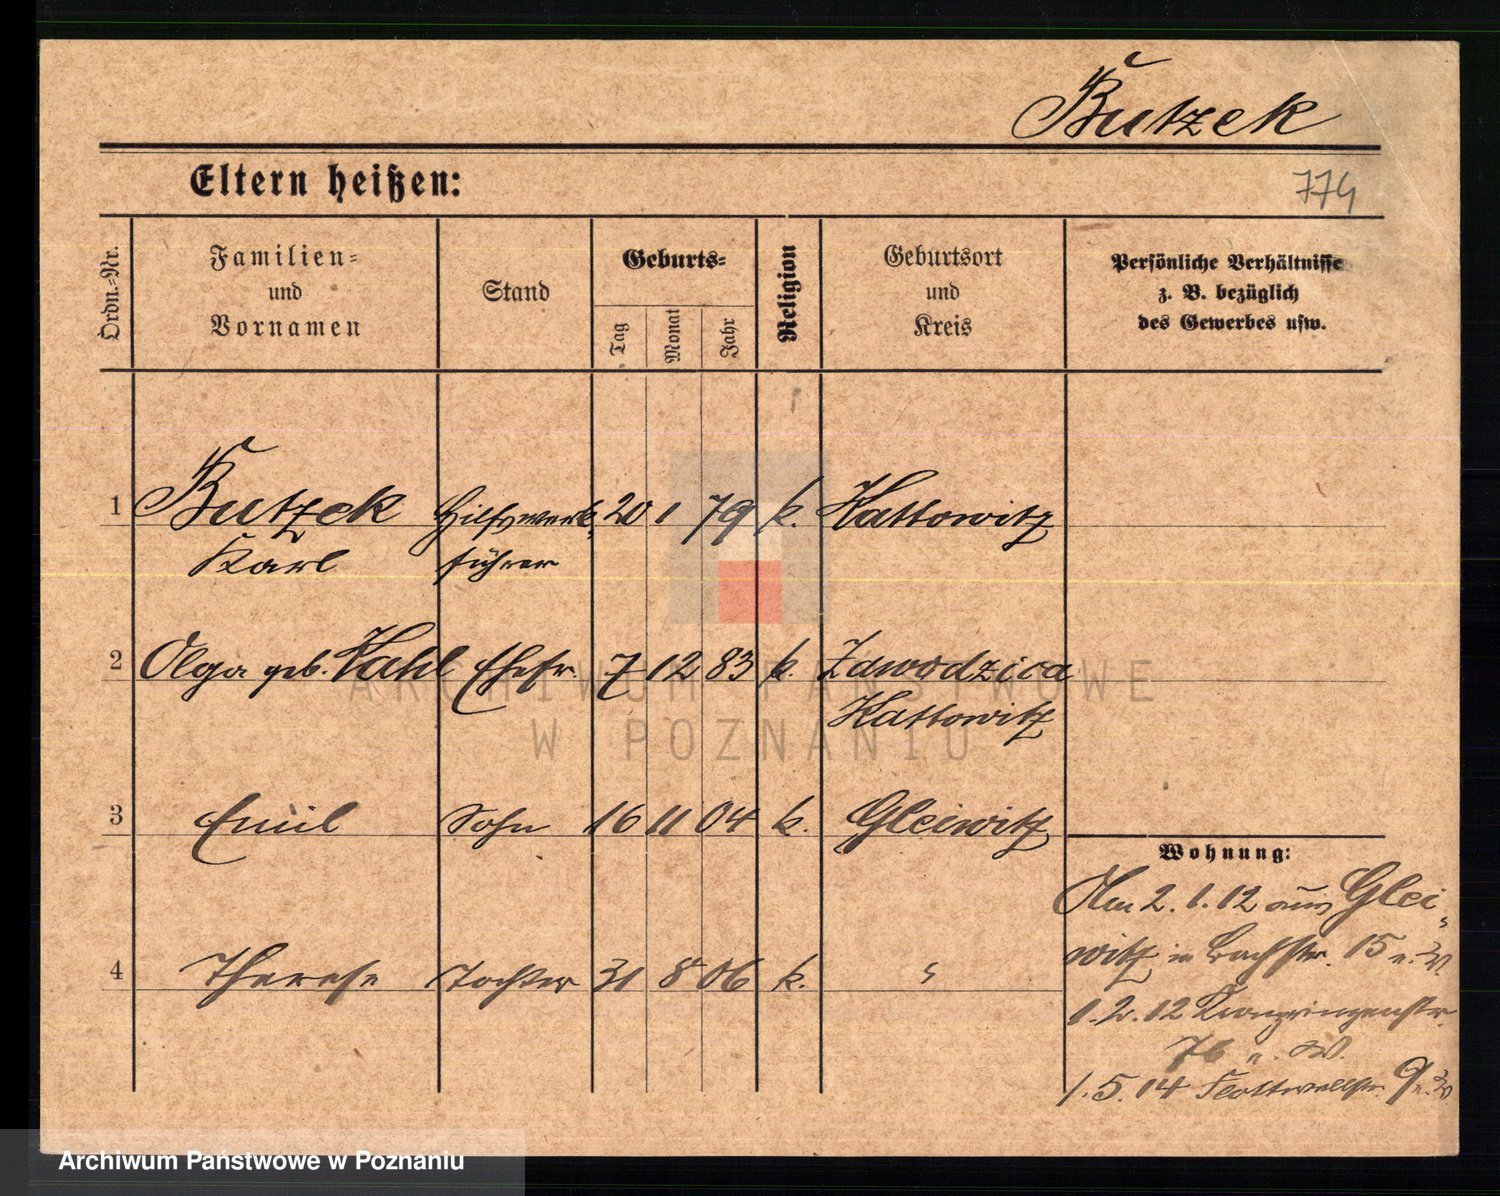 Butzek
Eltern heißen:
774
Ordn.-Nr.
Familien-
und
Vornamen
Stand
Geburts-
Tag
Monat
Jahr
Religion
Geburtsort
und
Kreis
Persönliche Verhältnisse
z. B. bezüglich
des Gewerbes usw.
1 Butzek Hilfswerk- 20 1 79 k. Kattowitz
Karl führer
2 Olga geb. Kahl Ehefr. 7 12 83 k. Zawodzica
Kattowitz
3 Emil Sohn 16 11 04 k. Gleiwitz
Wohnung:
Am 2.1.12 aus Glei-
4 Therese Tochter 31 8 06 k. "
witz in Bachstr. 15
1.2.12 Kronprinzenstr.
76
1.5.14 Flottwellstr. 9
ARCHIWUM PAŃSTWOWE
W POZNANIU
Archiwum Państwowe w Poznaniu